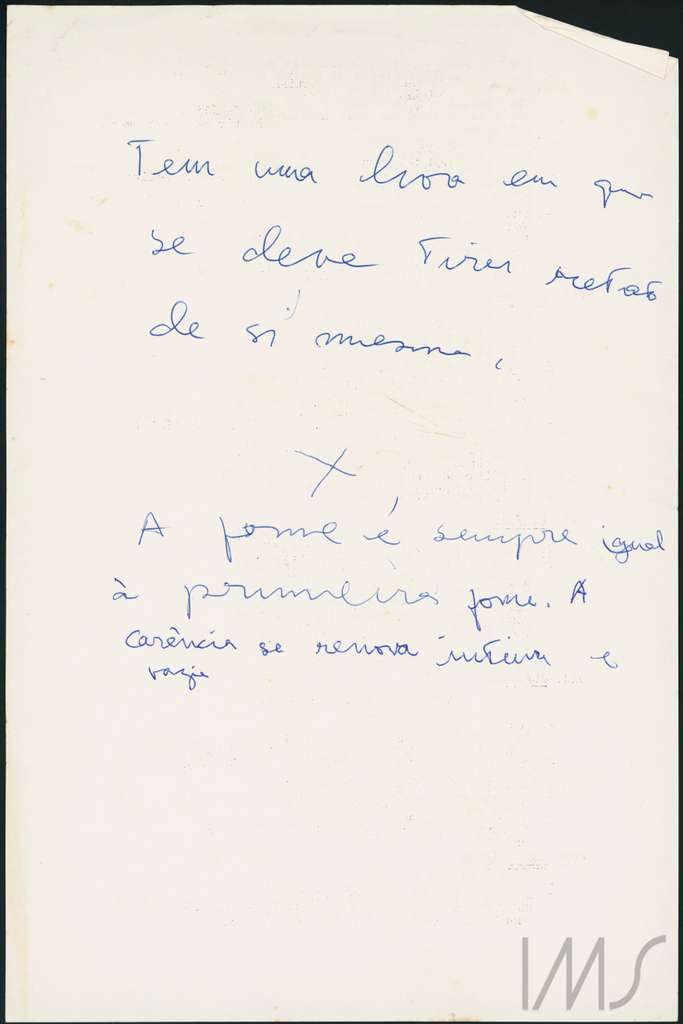 Tem uma hora em que
se deve tirar retrato
de si mesma.
X
A fome é sempre igual
à primeira fome. A
carência se renova inteira e
vazia
IMS